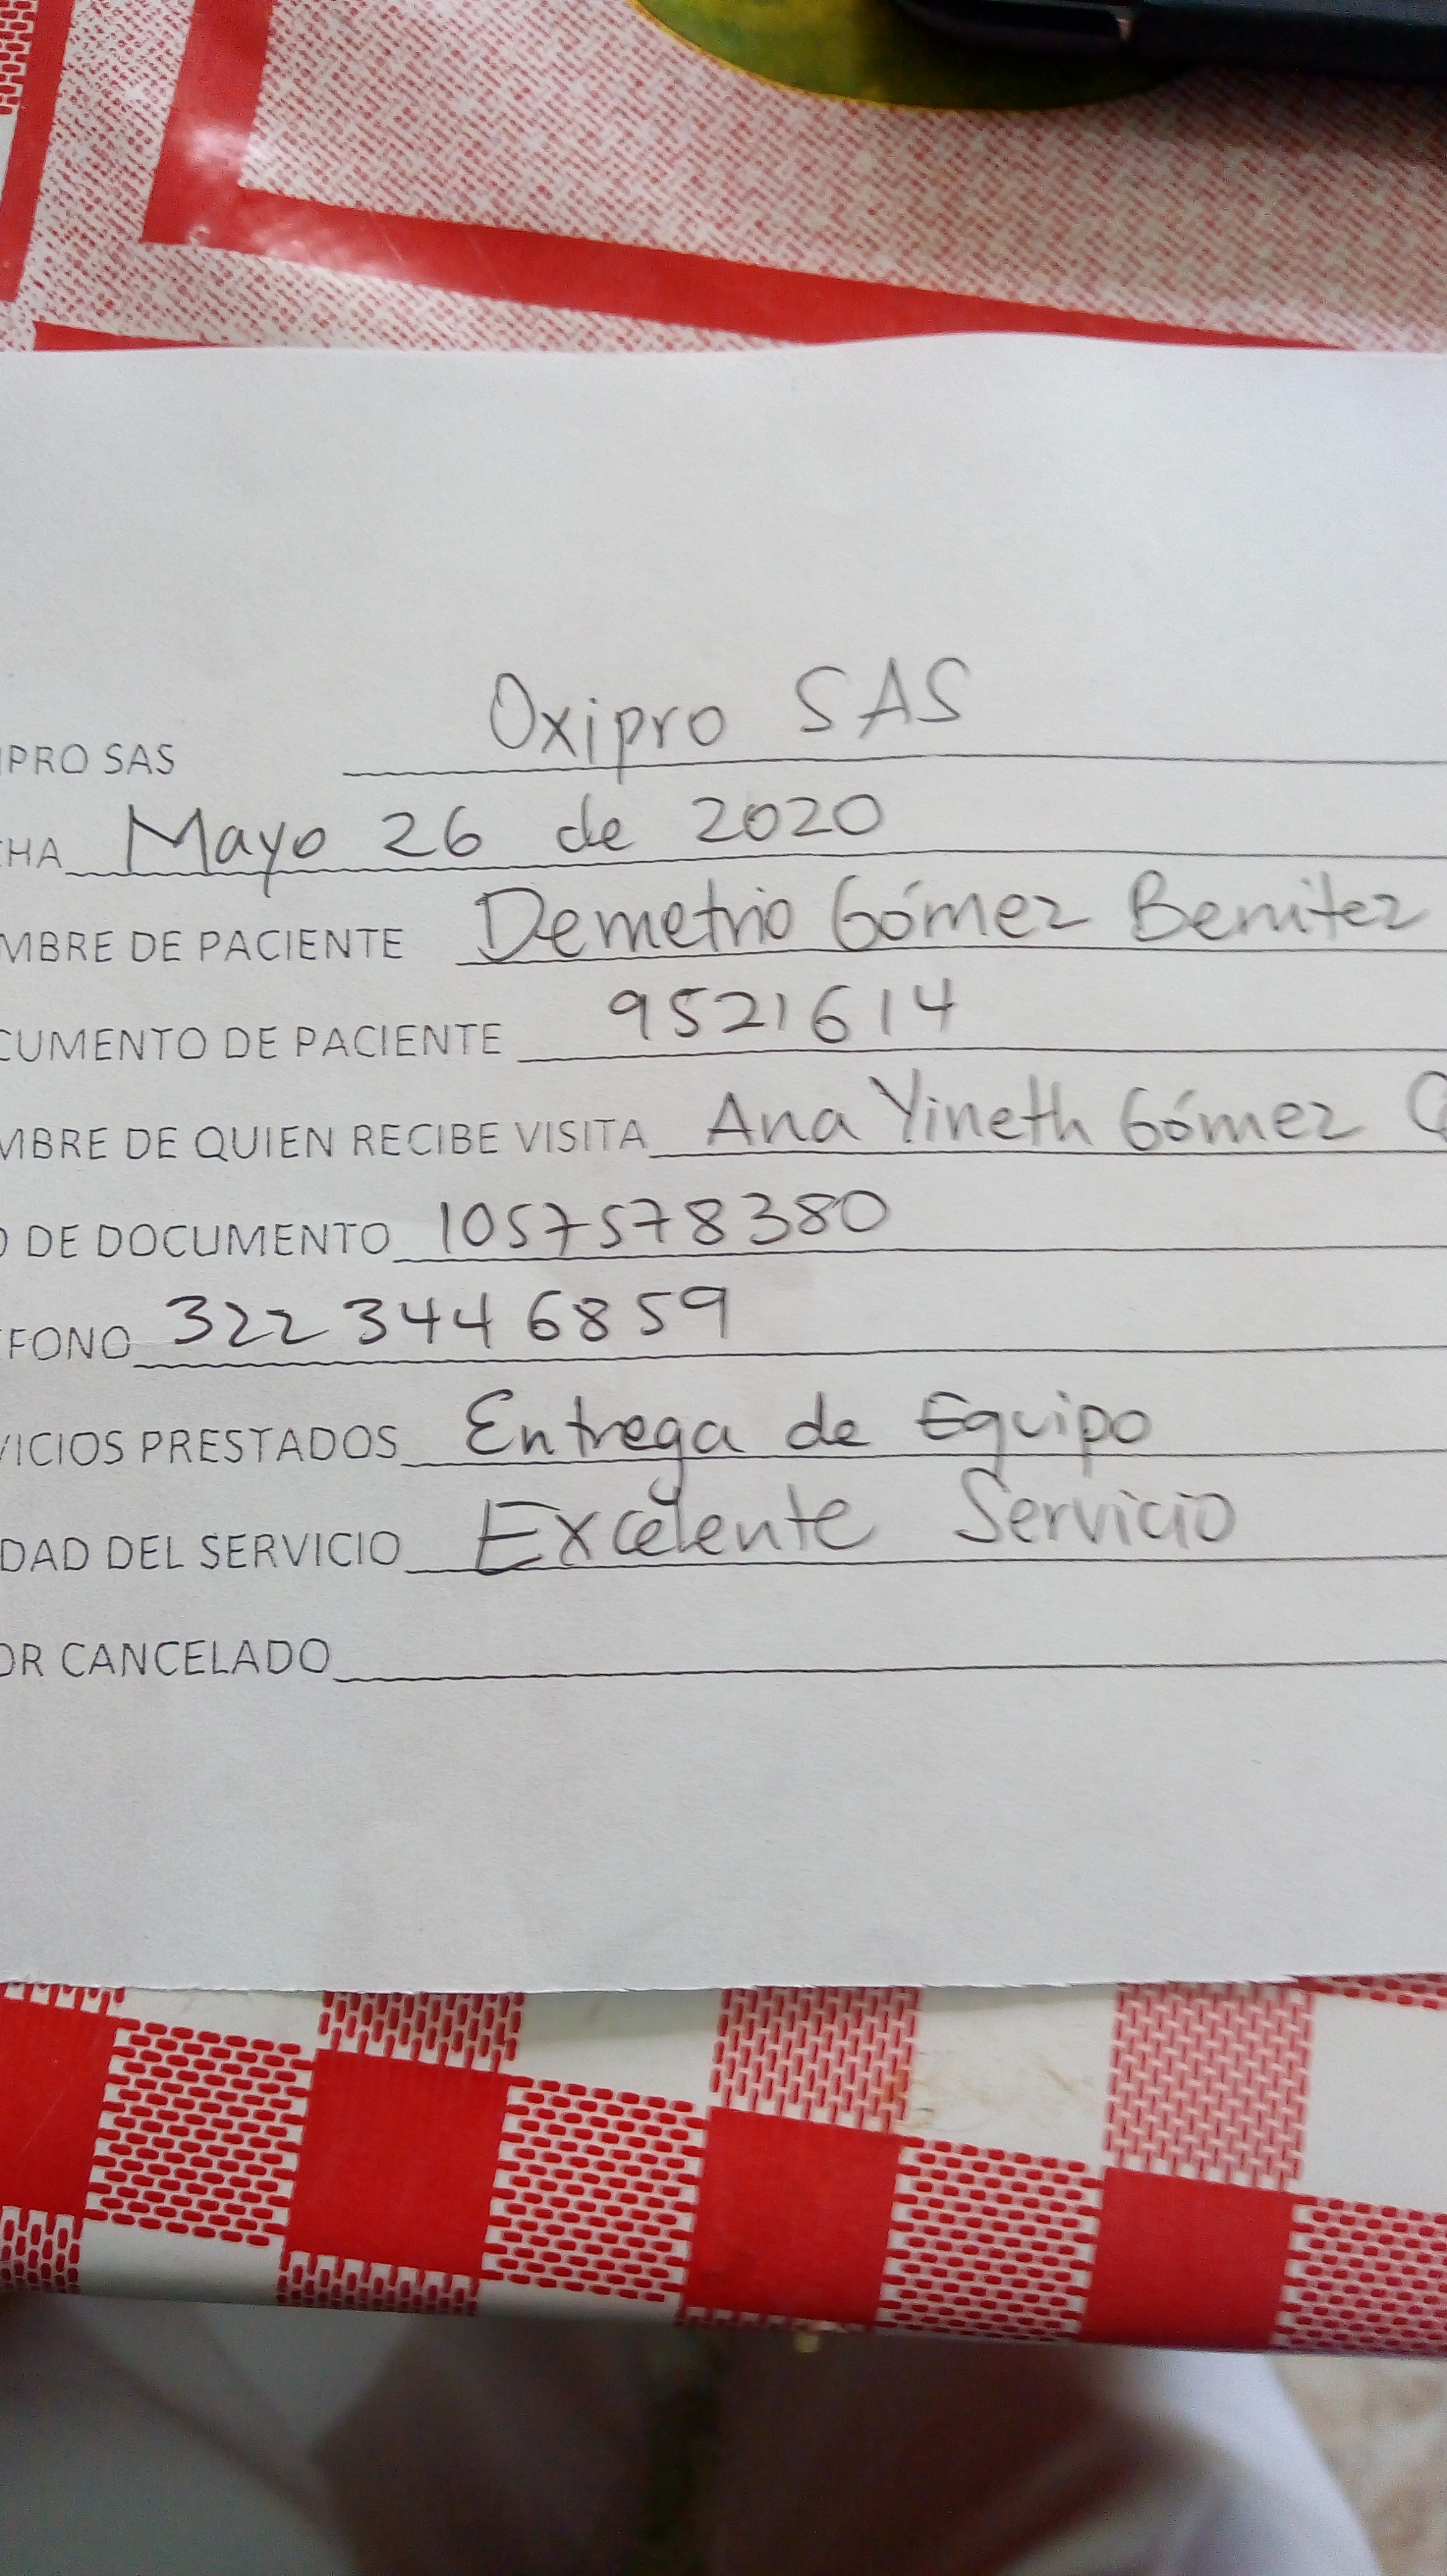 IPRO SAS Oxipro SAS
CHA Mayo 26 de 2020
MBRE DE PACIENTE Demetrio Gómez Benitez
CUMENTO DE PACIENTE 9521614
MBRE DE QUIEN RECIBE VISITA Ana Yineth Gómez
O DE DOCUMENTO 1057578380
FONO 322 344 6859
VICIOS PRESTADOS Entrega de Equipo
DAD DEL SERVICIO Excelente Servicio
OR CANCELADO